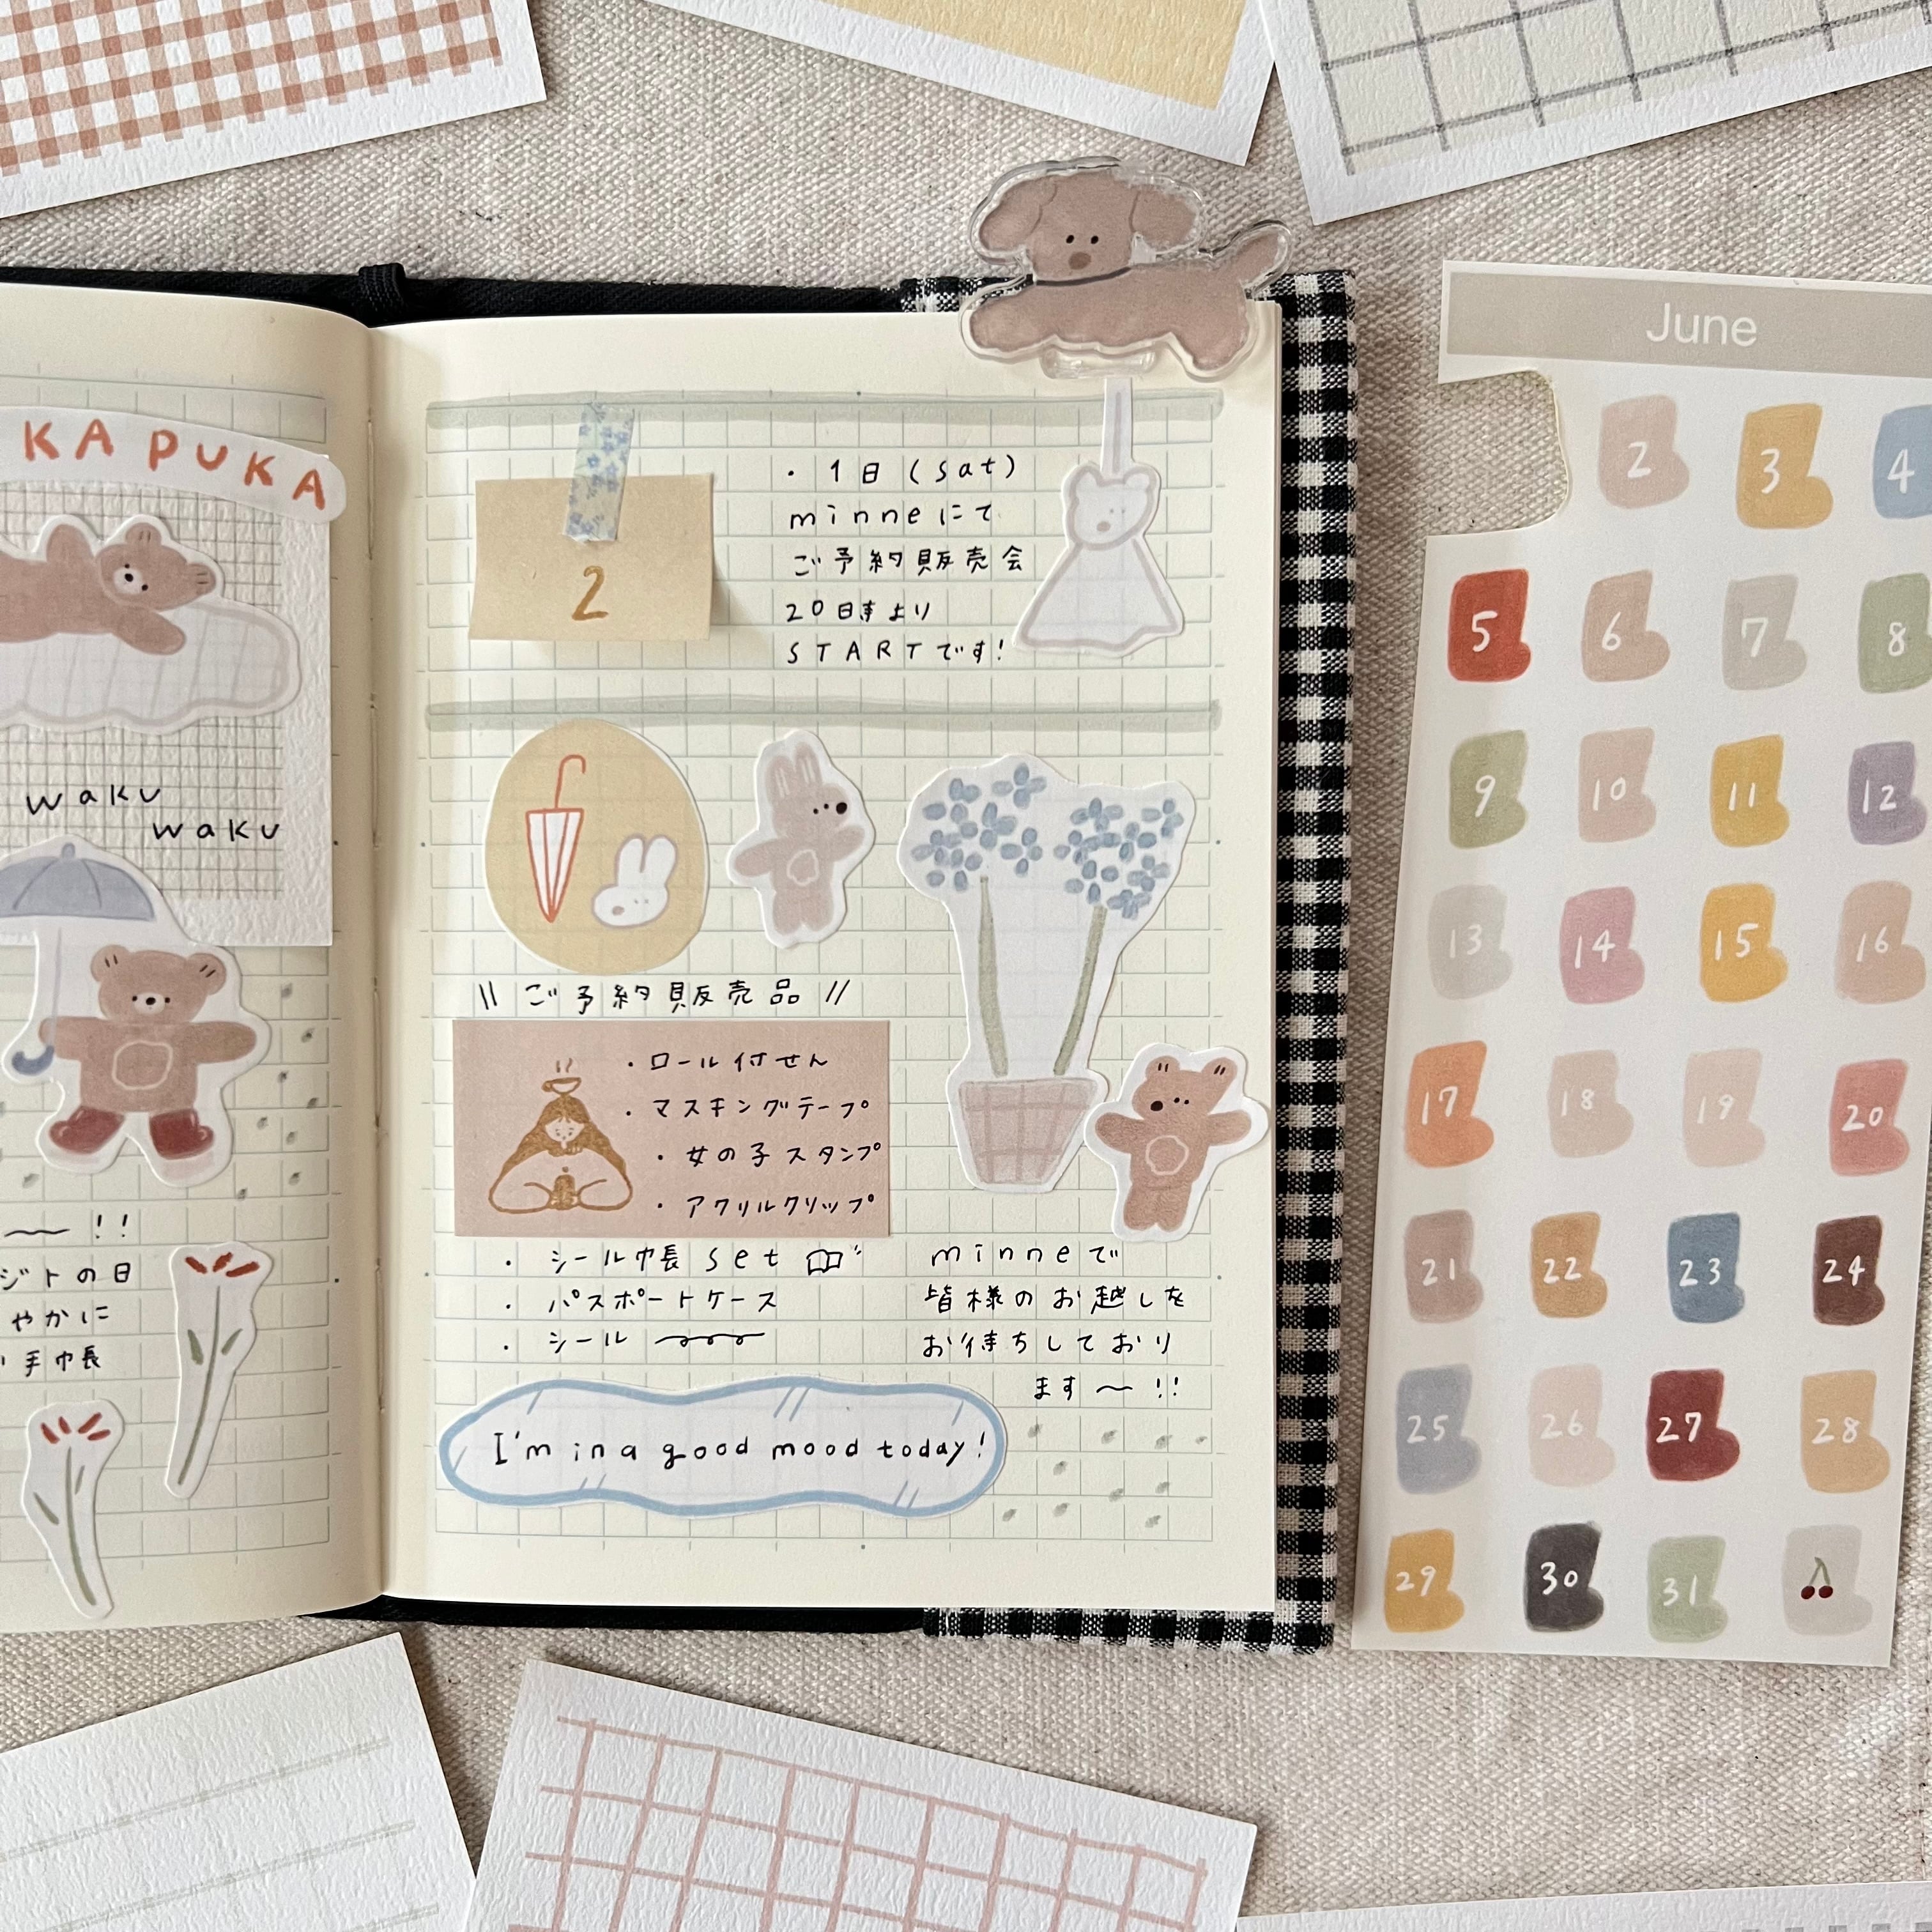 KAPUKA
waku
waku
〜!!
ジトの日
やかに
手巾長
2
・1日(sat)
minneにて
ご予約販売会
20時より
STARTです!
\\ ご予約販売品 //
・ロール付せん
・マスキングテープ
・女の子スタンプ
・アクリルクリップ
・シール帳set
・パスポートケース
・シール
minneで
皆様のお越しを
お待ちしており
ます〜!!
I'm in a good mood today!
June
2 3 4
5 6 7 8
9 10 11 12
13 14 15 16
17 18 19 20
21 22 23 24
25 26 27 28
29 30 31